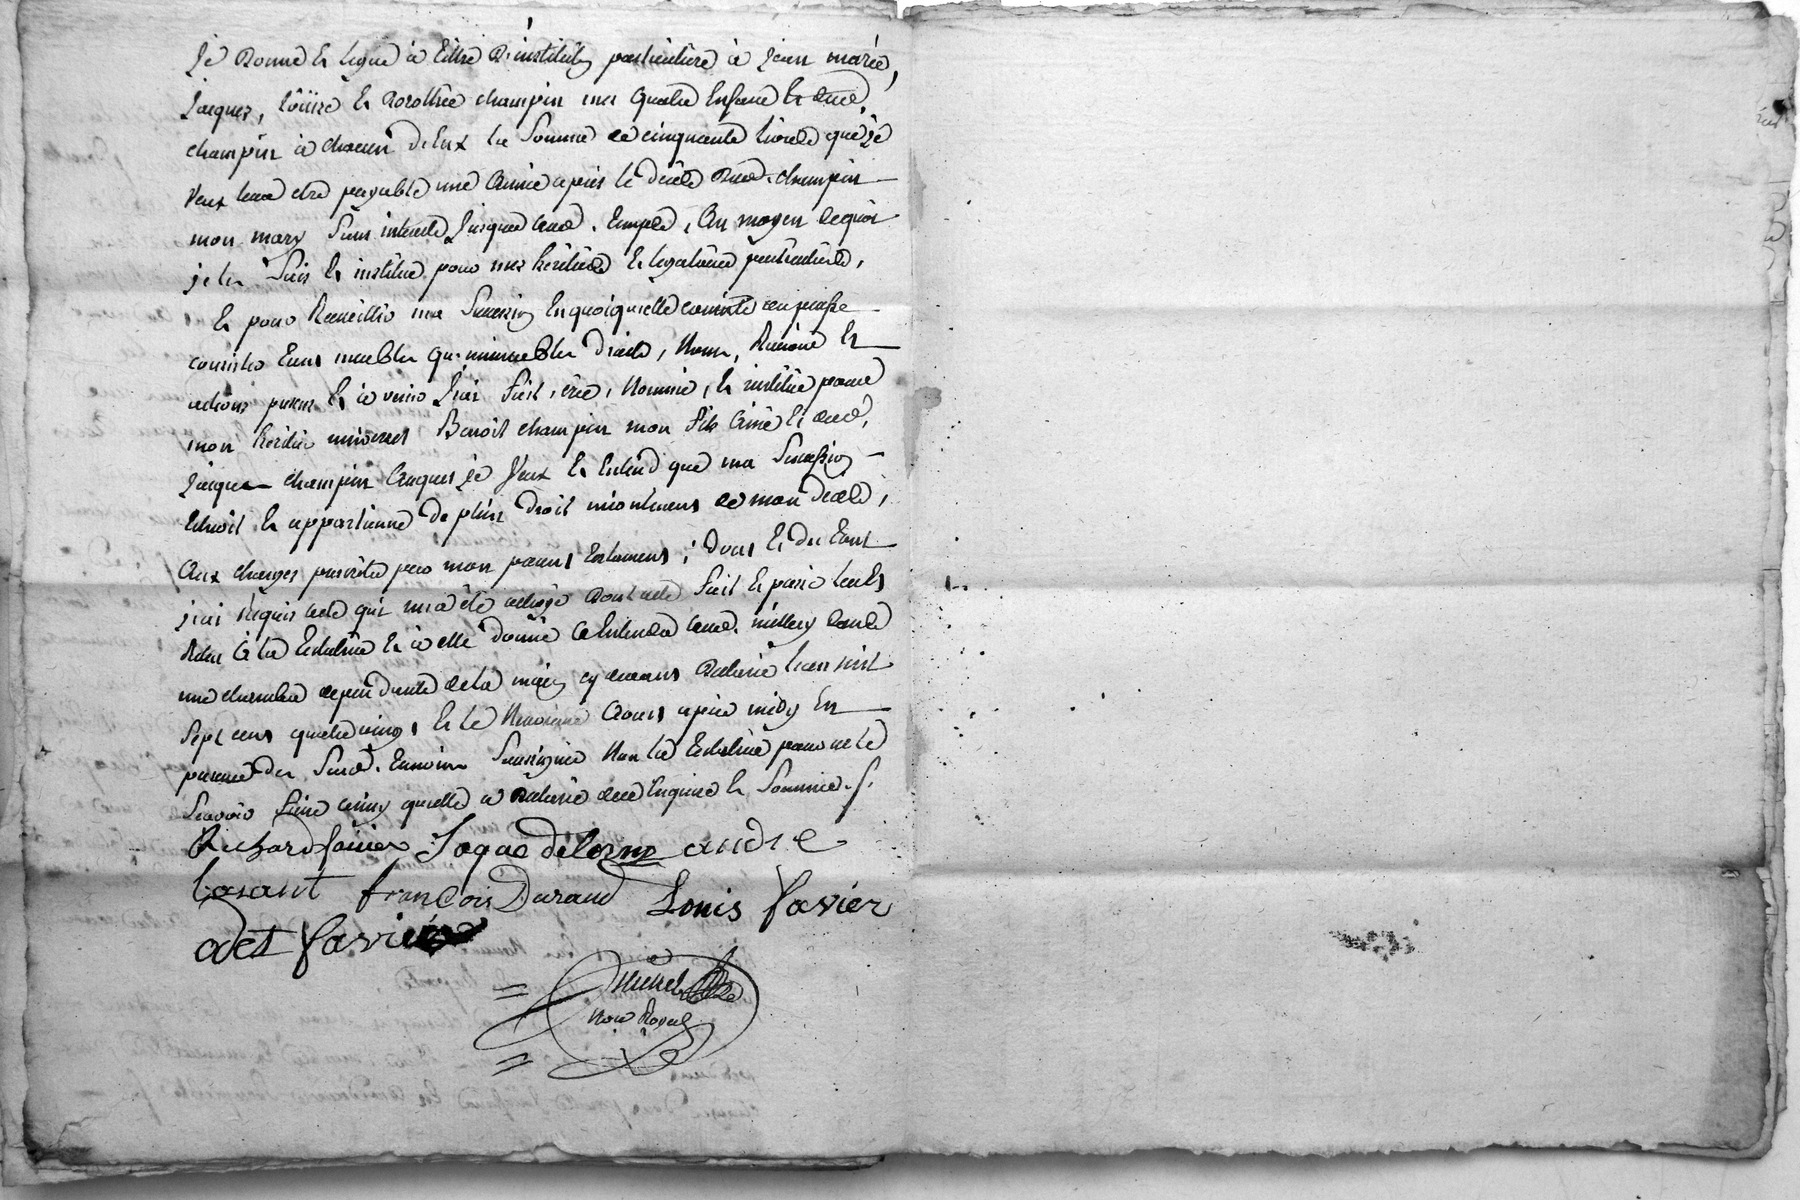 je donne & legue à titre d'institu͠on particuliere à jean marie,
jacques, loüise & dorothée champin mes quatre enfans & dud.
champin à chacun d'eux la somme de cinquante livres que je
veux leur etre payable une année après le décès dud. champin
mon mary sans interets jusques aud. temps, au moyen de quoi
je les fais & institue pour mes heritiers & legataires particuliers,
& pour recueillir ma succession en quoi qu'elle consiste ou puisse
consister tant meubles qu'immeubles droits, noms, raisons &
actions presens & à venir j'ai fait, créé, nommé, & institué pour
mon heritier universel Benoit champin mon fils ainé & dud.
jacques champin auquel je veux & entend que ma succession
echoit & appartienne de plein droit incontinent de mon décès,
aux charges prescrites par mon present testament; dont & du tout
j'ai requis acte qui m'a été octroyé dont acte fait & passé leu &
releu à la testatrice & à elle donné à entendre aud. millery dans
une chambre dependante de la maison cy devant datterie l'an mil
sept cens quatre vingt & le neuvieme aoust après midy en
presence des susd. temoins soussignés non la testatrice pour ne le
savoir faire ainsy qu'elle a declaré de ce enquise & sommée.
Richard favier Jaque delorme andre
François Durand Louis favier
favier
nore Royal